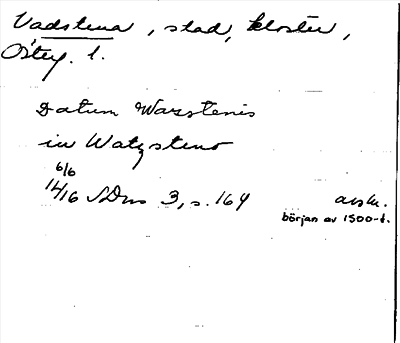 Vadstena, stad, kloster,
Österg. l.
Datum Warstenis
in Watzsteno
6/6
1416 SDns 3, s. 164 avskr.
början av 1500-t.